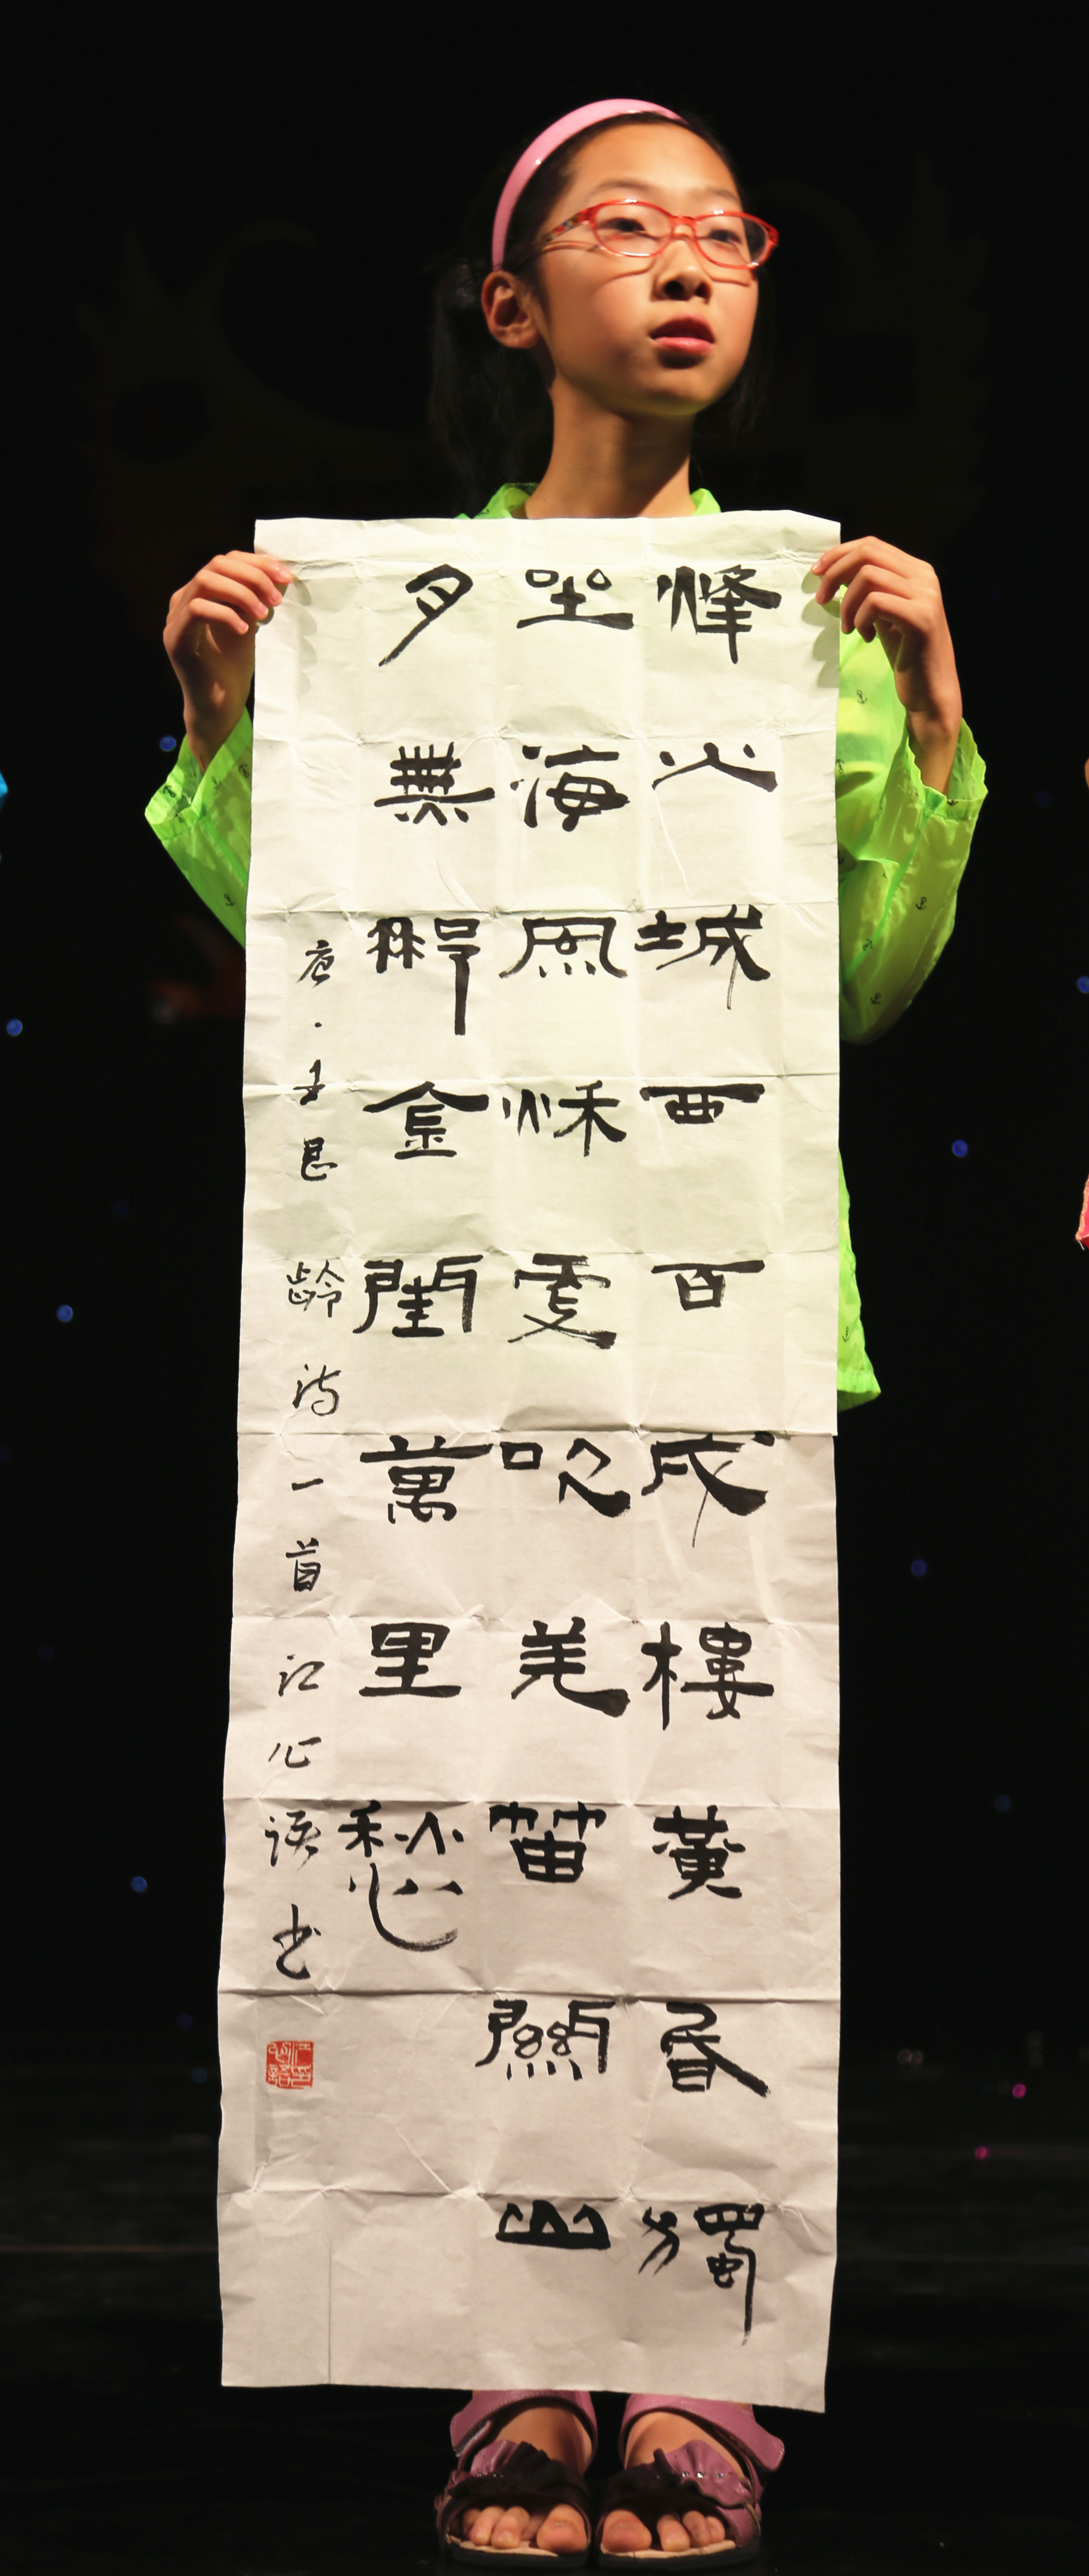 烽火城西百戍樓黃昏獨
坐海風秋更吹羌笛關山
月無那金閨萬里愁
唐·王昌龄诗一首江心语书
江心語印